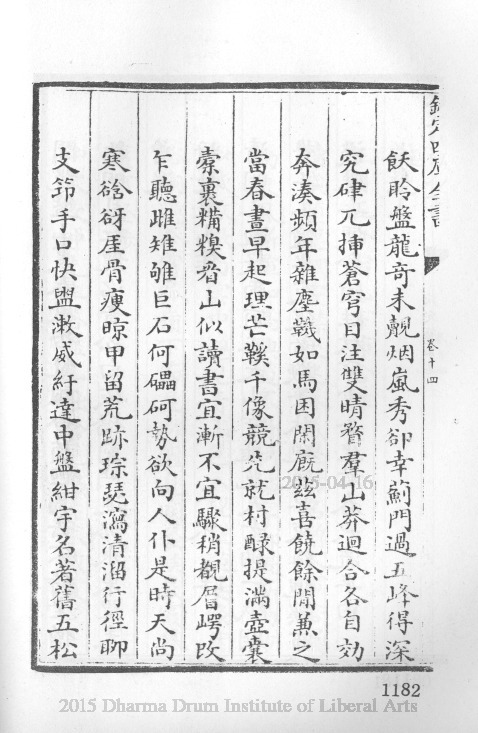 欽定四庫全書
卷十四
飫聆盤龍奇未覿烟嵐秀卻幸薊門過五峰得深
究硉兀揷蒼穹目注雙睛瞀羣山莽迴合各自効
奔湊頻年雜塵鞿如馬困閑廐兹喜饒餘閒兼之
當春晝早起理芒鞵千像競先就村醁提滿壺囊
橐裹糒糗看山似讀書宜漸不宜驟稍觀層崿改
乍聽雌雉雊巨石何礧砢勢欲向人仆是時天尚
寒谽谺厓骨瘦晾甲留荒跡琮琤瀉清溜行徑聊
支筇手口快盥漱威紆達中盤紺宇名著舊五松
2015-04-16
1182
2015 Dharma Drum Institute of Liberal Arts